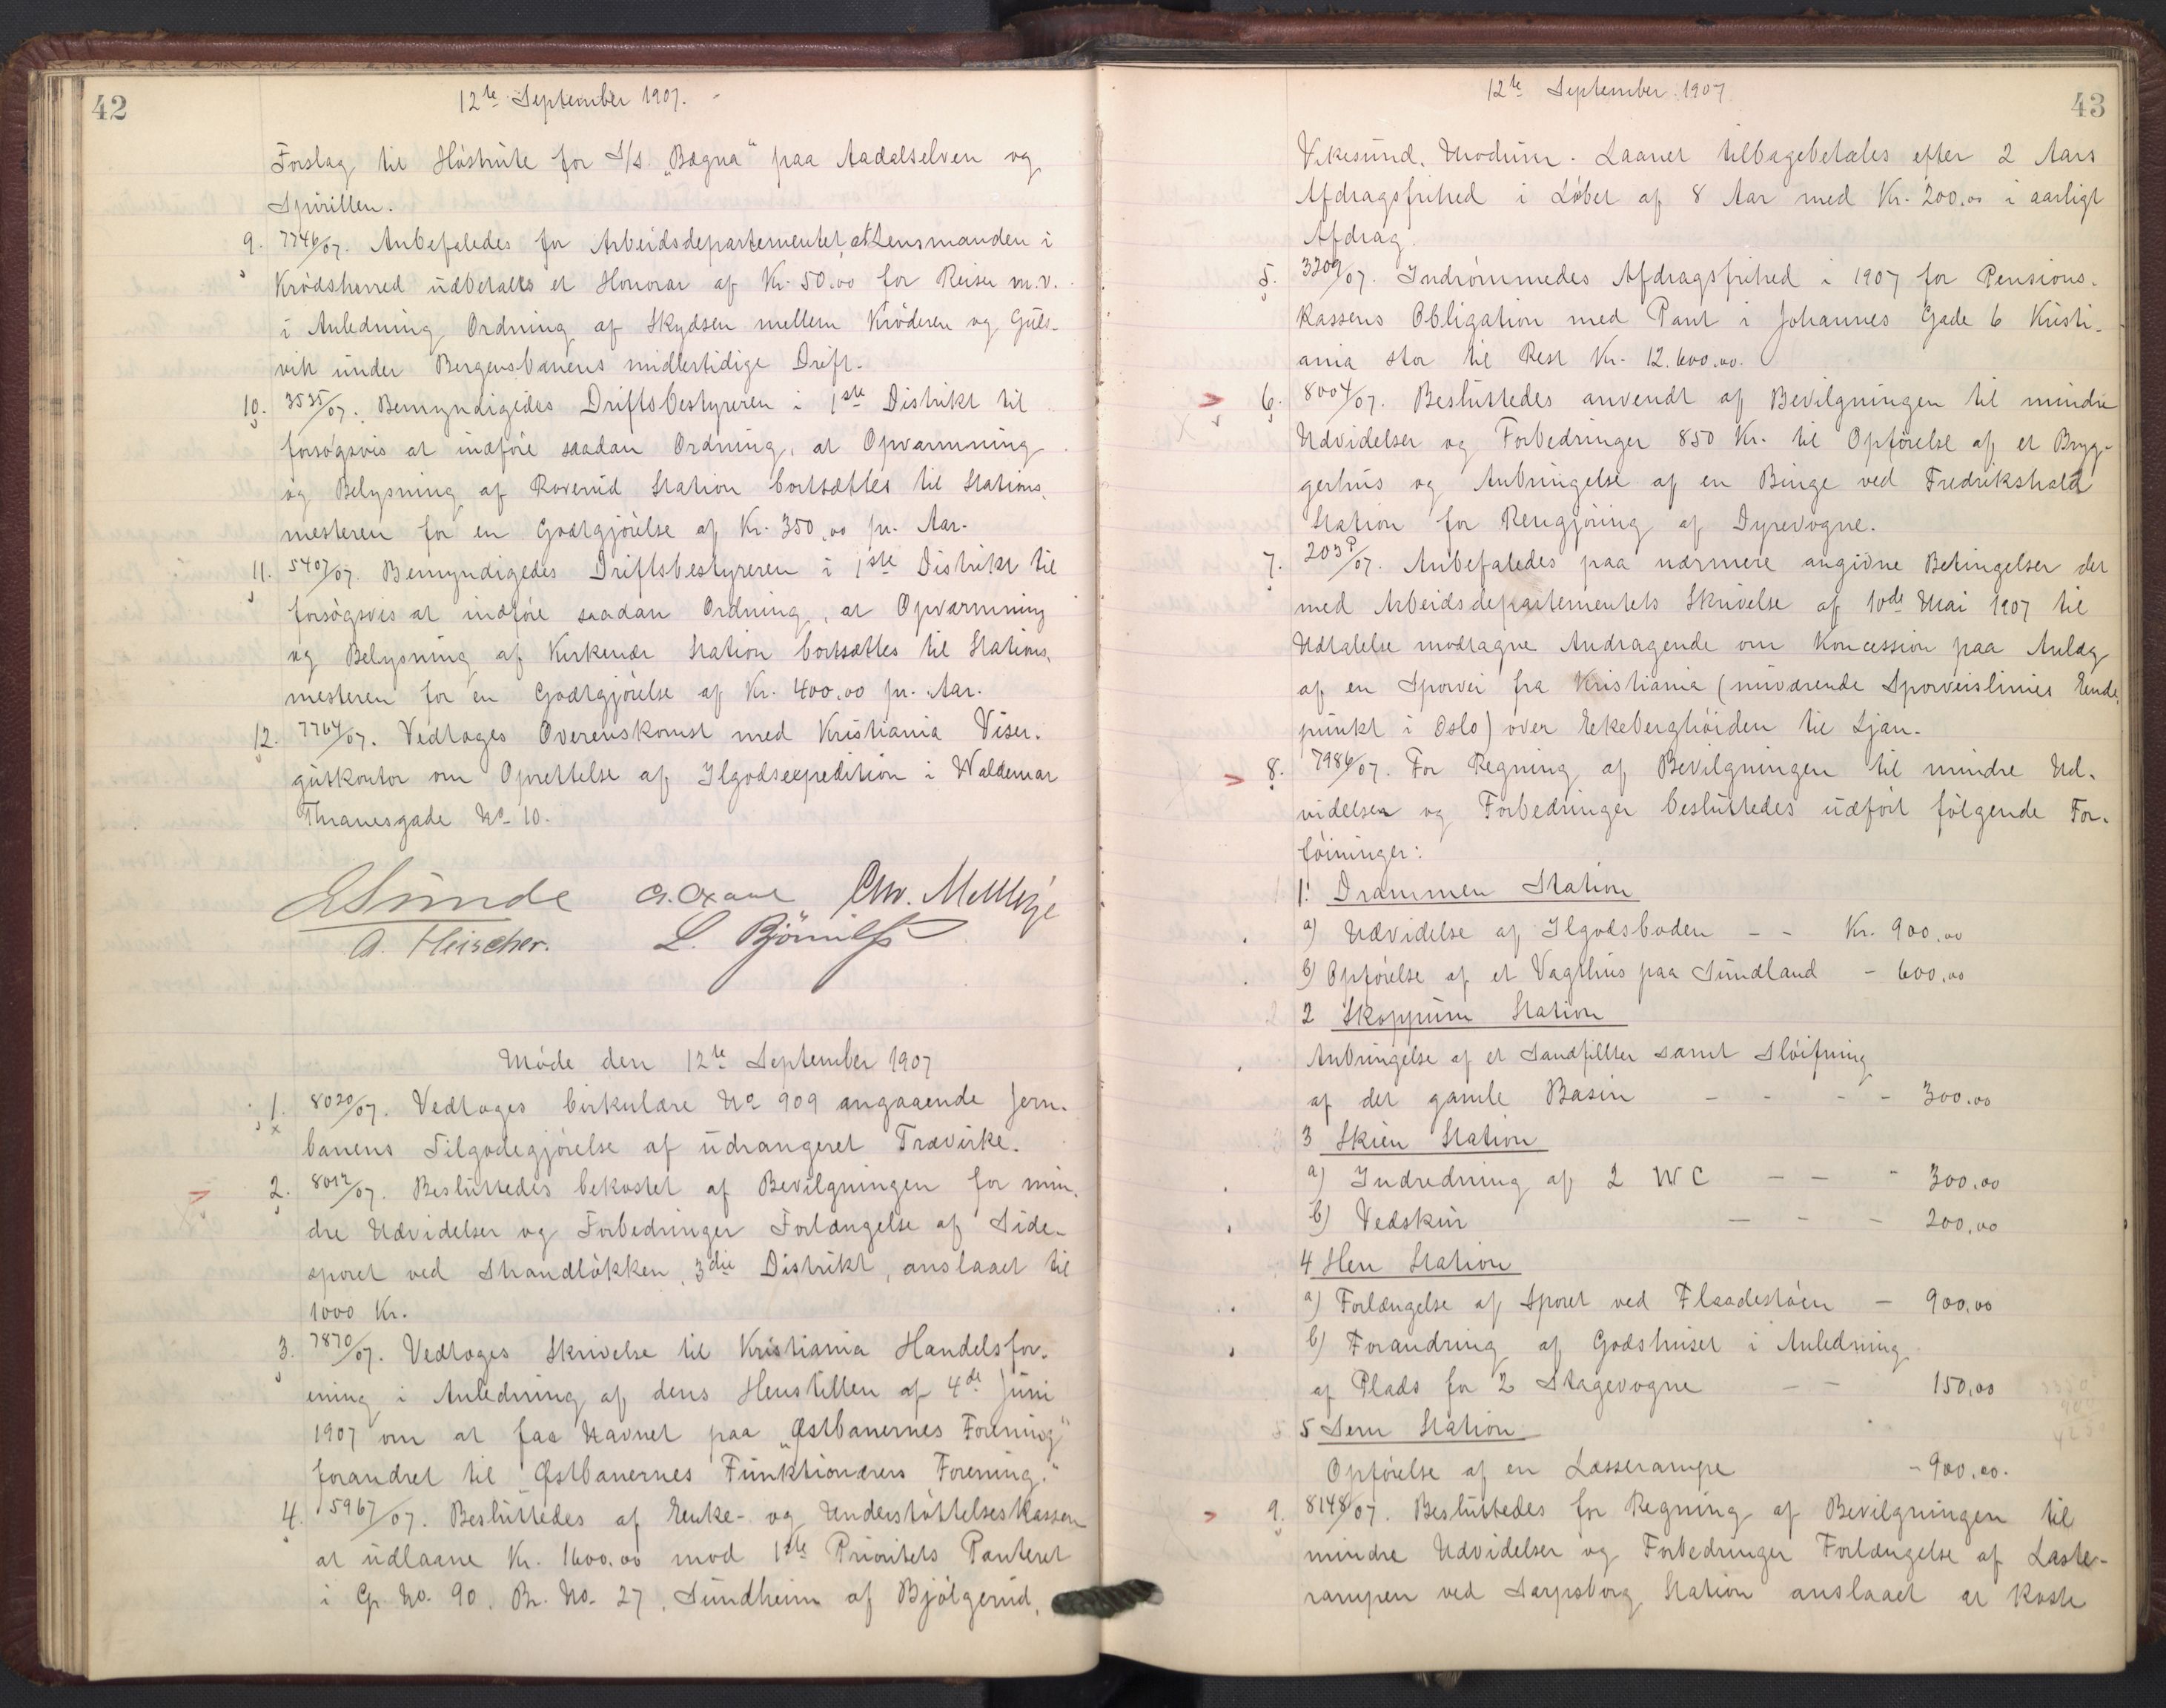 42
12te September 1907.
Forslag til Høstrute for S/S „Bægna“ paa Aadalselven og
Spirillen.
9. 7746/07. Anbefaledes for Arbeidsdepartementet at Lensmanden i
Krødsherred udbetales et Honorar af Kr. 50.00 for Reiser m.v.
i Anledning Ordning af Skydsen mellem Krøderen og Guls-
vik under Bergensbanens midlertidige Drift.
10. 3535/07. Bemyndigedes Driftsbestyreren i 1ste Distrikt til
forsøgsvis at indføre saadan Ordning, at Opvarmning
og Belysning af Roverud Station bortsættes til Stations-
mesteren for en Godtgjørelse af Kr. 350.00 pr. Aar.
11. 5407/07. Bemyndigedes Driftsbestyreren i 1ste Distrikt til
forsøgsvis at indføre saadan Ordning, at Opvarmning
og Belysning af Kirkenær Station bortsættes til Stations-
mesteren for en Godtgjørelse af Kr. 400.00 pr. Aar.
12. 7764/07. Vedtoges Overenskomst med Kristiania Viser-
gutkontor om Oprettelse af Ilgodsexpedition i Waldemar
Thranesgade No 10.
ESunde
A. Fleischer.
Møde den 12te September 1907
1. 8020/07. Vedtoges Cirkulære No 909 angaaende Jern-
banens Tilgodegjørelse af udrangeret Trævirke.
2. 8012/07. Besluttedes bekostet af Bevilgningen for min-
dre Udvidelser og Forbedringer Forlængelse af Side-
sporet ved Strandløkken, 3die Distrikt, anslaaet til
1000 Kr.
3. 7870/07. Vedtoges Skrivelse til Kristiania Handelsfor-
ening i Anledning af dens Henstillen af 4de Juni
1907 om at faa Navnet paa „Østbanernes Forening“
forandret til „Østbanernes Funktionærers Forening.“
4. 5967/07. Besluttedes af Enke- og Understøttelseskassen
at udlaane Kr. 1600.00 mod 1ste Prioritets Panteret
i G. No. 90. Br. No. 27, Sundheim af Bjølgerud,
43
12te September 1907
Vikesund, Modum. Laanet tilbagebetales efter 2 Aars
Afdragsfrihed i Løbet af 8 Aar med Kr. 200.00 i aarligt
Afdrag.
5. 3209/07. Indrømmedes Afdragsfrihed i 1907 for Pensions-
kassens Obligation med Pant i Johannes Gade 6 Kristi-
ania stor til Rest Kr. 12.600.00.
6. 8004/07. Besluttedes anvendt af Bevilgningen til mindre
Udvidelser og Forbedringer 850 Kr. til Opførelse af et Bryg-
gerhus og Anbringelse af en Binge ved Fredrikshald
Station for Rengjøring af Dyrevogne.
7. 203P/07. Anbefaledes paa nærmere angivne Betingelser det
med Arbeidsdepartementets Skrivelse af 10de Mai 1907 til
Udtalelse modtagne Andragende om Koncession paa Anlæg
af en Sporvei fra Kristiania (nuværende Sporveislinies Ende-
punkt i Oslo) over Ekeberghøiden til Ljan.
8. 7986/07. For Regning af Bevilgningen til mindre Ud-
videlser og Forbedringer besluttedes udført følgende For-
føininger:
1. Drammen Station
a) Udvidelse af Ilgodsboden - - Kr. 900.00
b) Opførelse af et Vagthus paa Sundland - 600.00
2 Skoppum Station
Anbringelse af et Sandfillter samt Sløifning
af det gamle Basin - - - - 300.00
3 Skien Station
a) Indredning af 2 WC - - - 300.00
b) Vedskur - - - 200.00
4 Hen Station
a) Forlængelse af Sporet ved Flaadestøen - 900.00
b) Forandring af Godshuset i Anledning
af Plads for 2 Stagevogne - - 150.00
5 Sem Station
Opførelse af en Lasserampe - 900.00.
9. 8148/07. Besluttedes for Regning af Bevilgningen til
mindre Udvidelser og Forbedringer Forlængelse af Laste-
rampen ved Sarpsborg Station anslaaet at koste